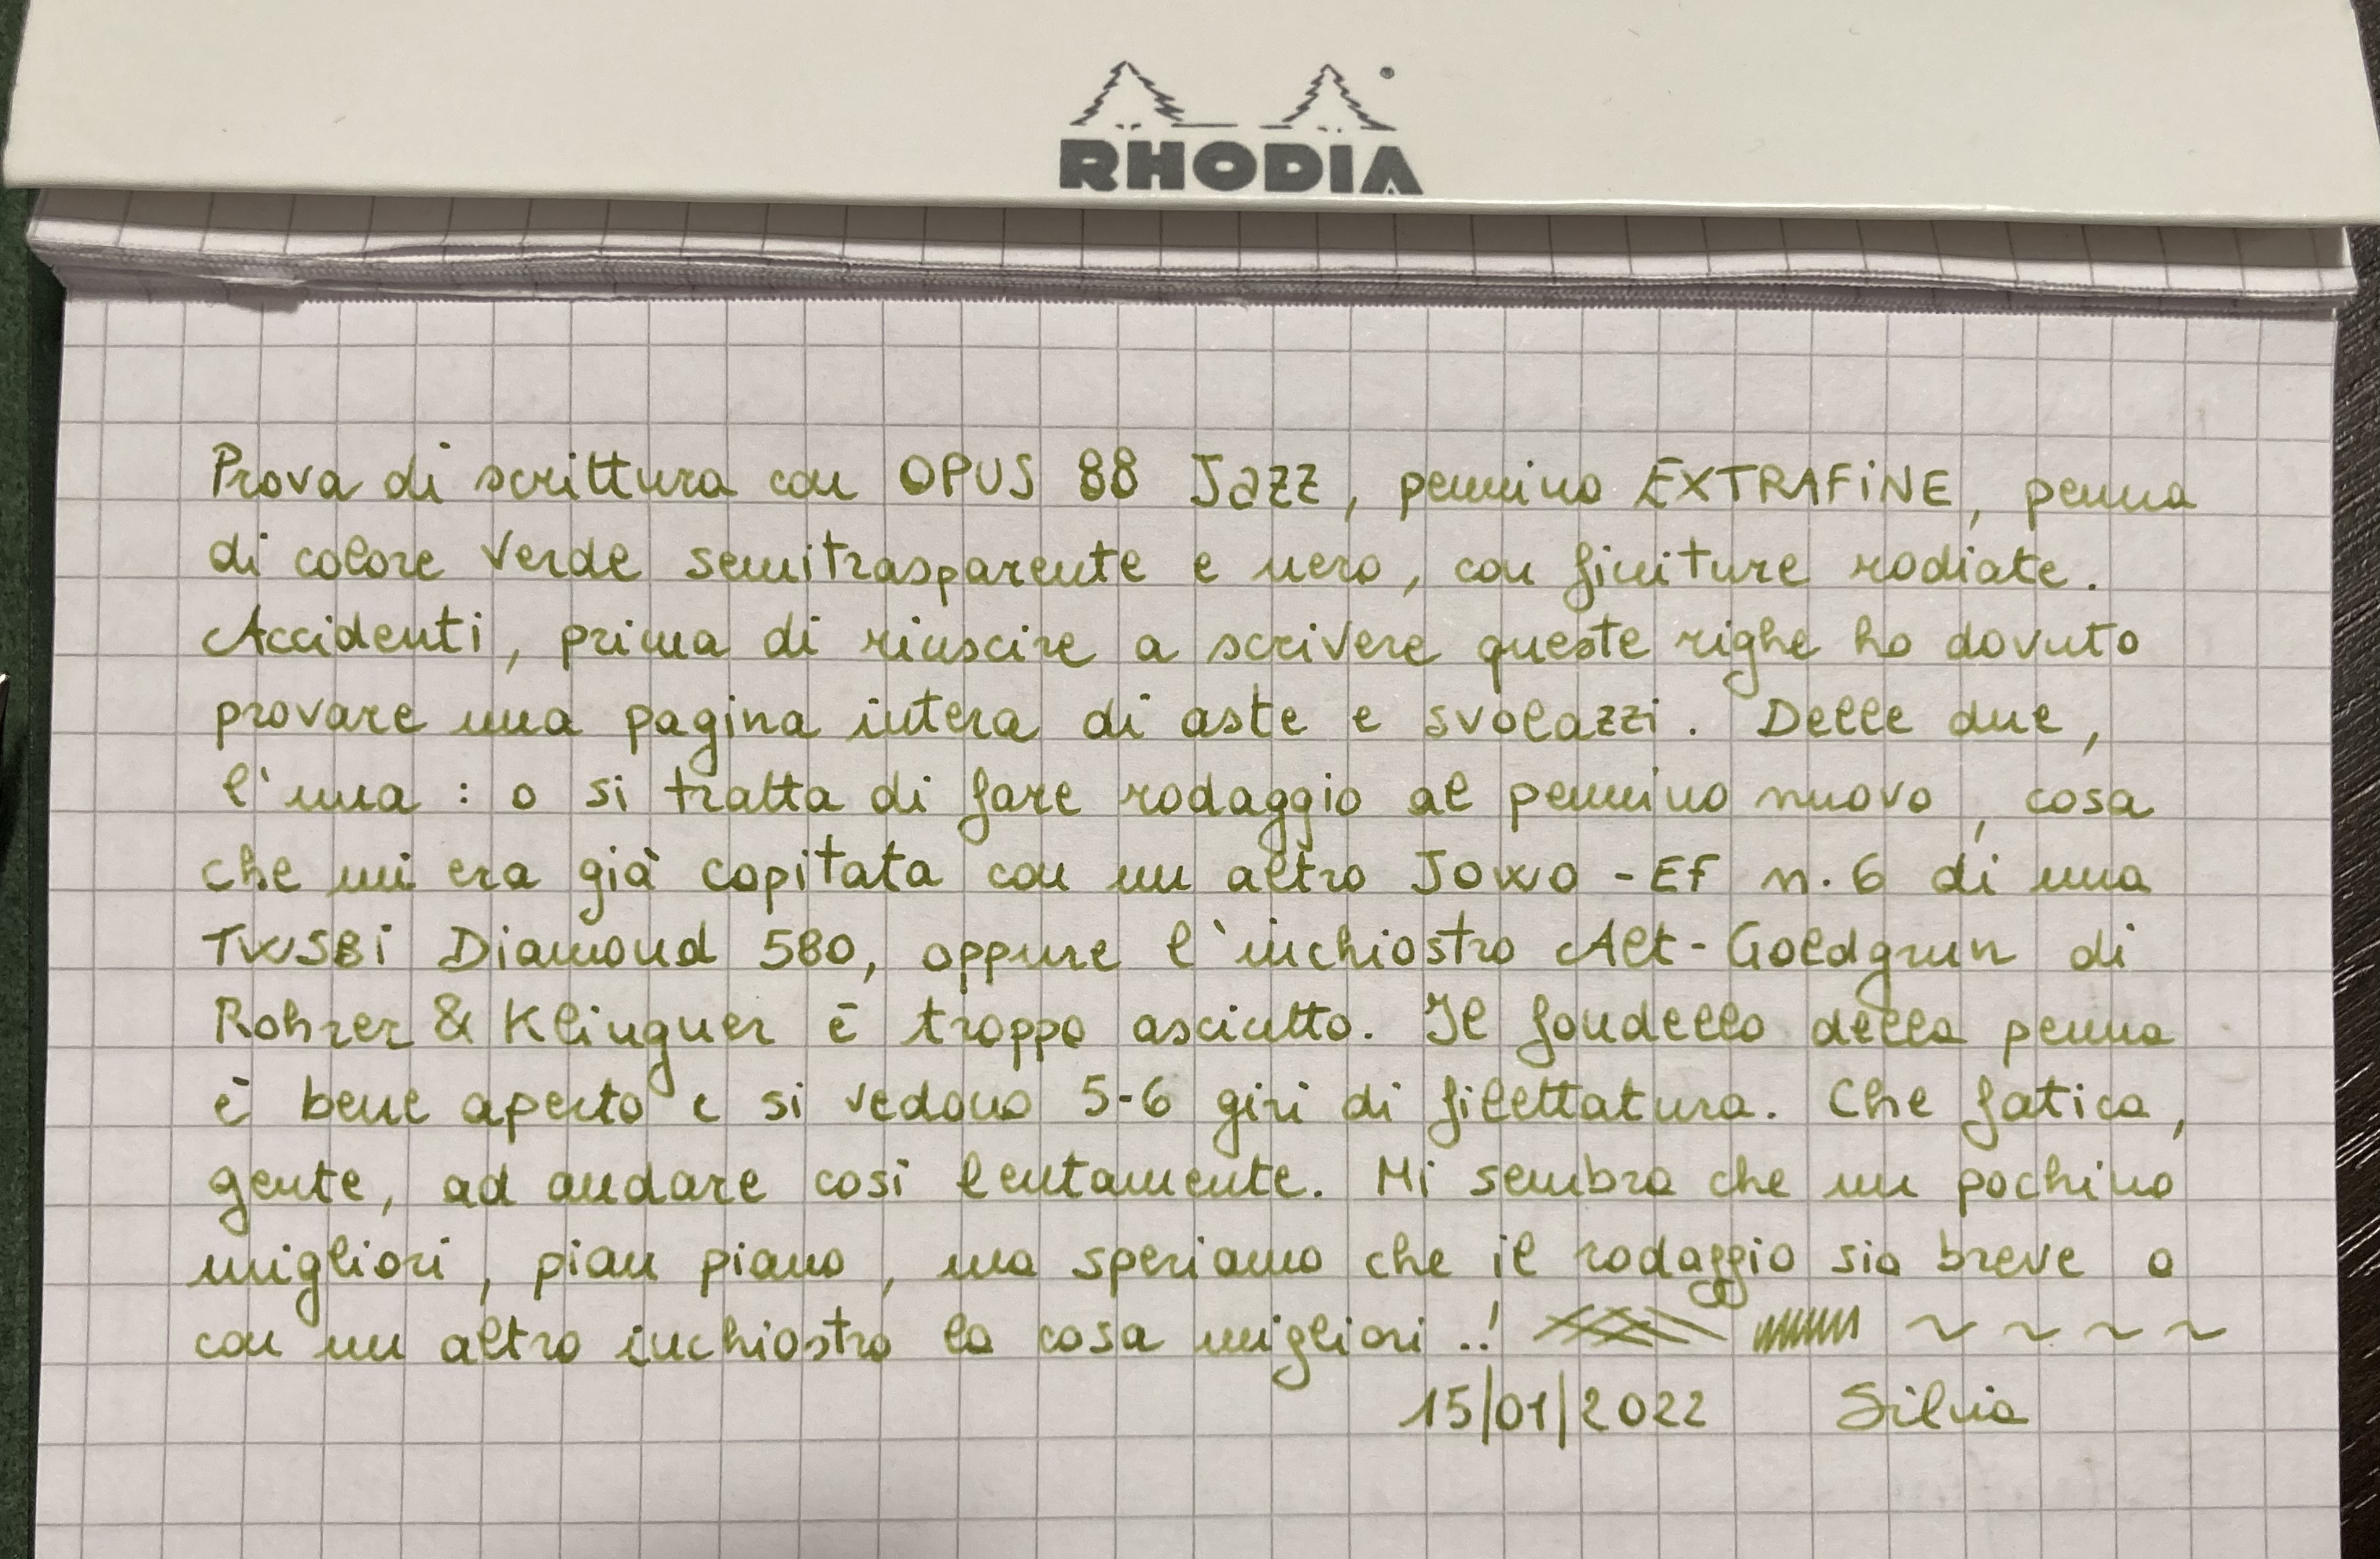 RHODIA
Prova di scrittura con OPUS 88 Jazz, pennino EXTRAFiNE, penna
di colore verde semitrasparente e nero, con finiture rodiate.
Accidenti, prima di riuscire a scrivere queste righe ho dovuto
provare una pagina intera di aste e svolazzi. Delle due,
l'una: o si tratta di fare rodaggio al pennino nuovo, cosa
che mi era già capitata con un altro Jowo - EF n. 6 di una
TWSBi Diamond 580, oppure l'inchiostro Alt-Goldgrun di
Rohrer & Klinguer è troppo asciutto. Il fondello della penna
è bene aperto e si vedono 5-6 giri di filettatura. Che fatica,
gente, ad andare così lentamente. Mi sembra che un pochino
migliori, pian piano, ma speriamo che il rodaggio sia breve o
con un altro inchiostro la cosa migliori..!
15/01/2022 Silvia